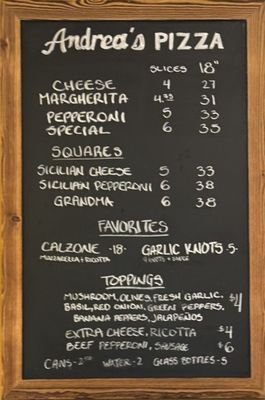 Andrea's PIZZA
SLICES 18"
CHEESE 4 27
MARGHERITA 31
PEPPERONI 5 33
SPECIAL 6 35
SQUARES
SICILIAN CHEESE 5 33
SICILIAN PEPPERONI 6 38
GRANDMA 6 38
FAVORITES
CALZONE -18- GARLIC KNOTS -5-
MOZZARELLA + RICOTTA KNOTS + SAUCE
TOPPINGS
MUSHROOM, OLIVES, FRESH GARLIC,
BASIL, RED ONION, GREEN PEPPERS, $4
BANANA PEPPERS, JALAPEÑOS
EXTRA CHEESE, RICOTTA $4
BEEF PEPPERONI, SAUSAGE $6
CANS - WATER - 2 GLASS BOTTLES - 5